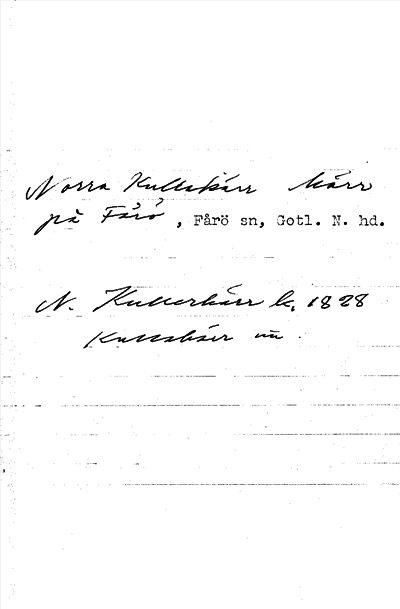 Norra Kullakärr kärr
på Fårö, Fårö sn, Gotl. N. hd.
N. Kullerkärr k. 1828
Kullakärr un.